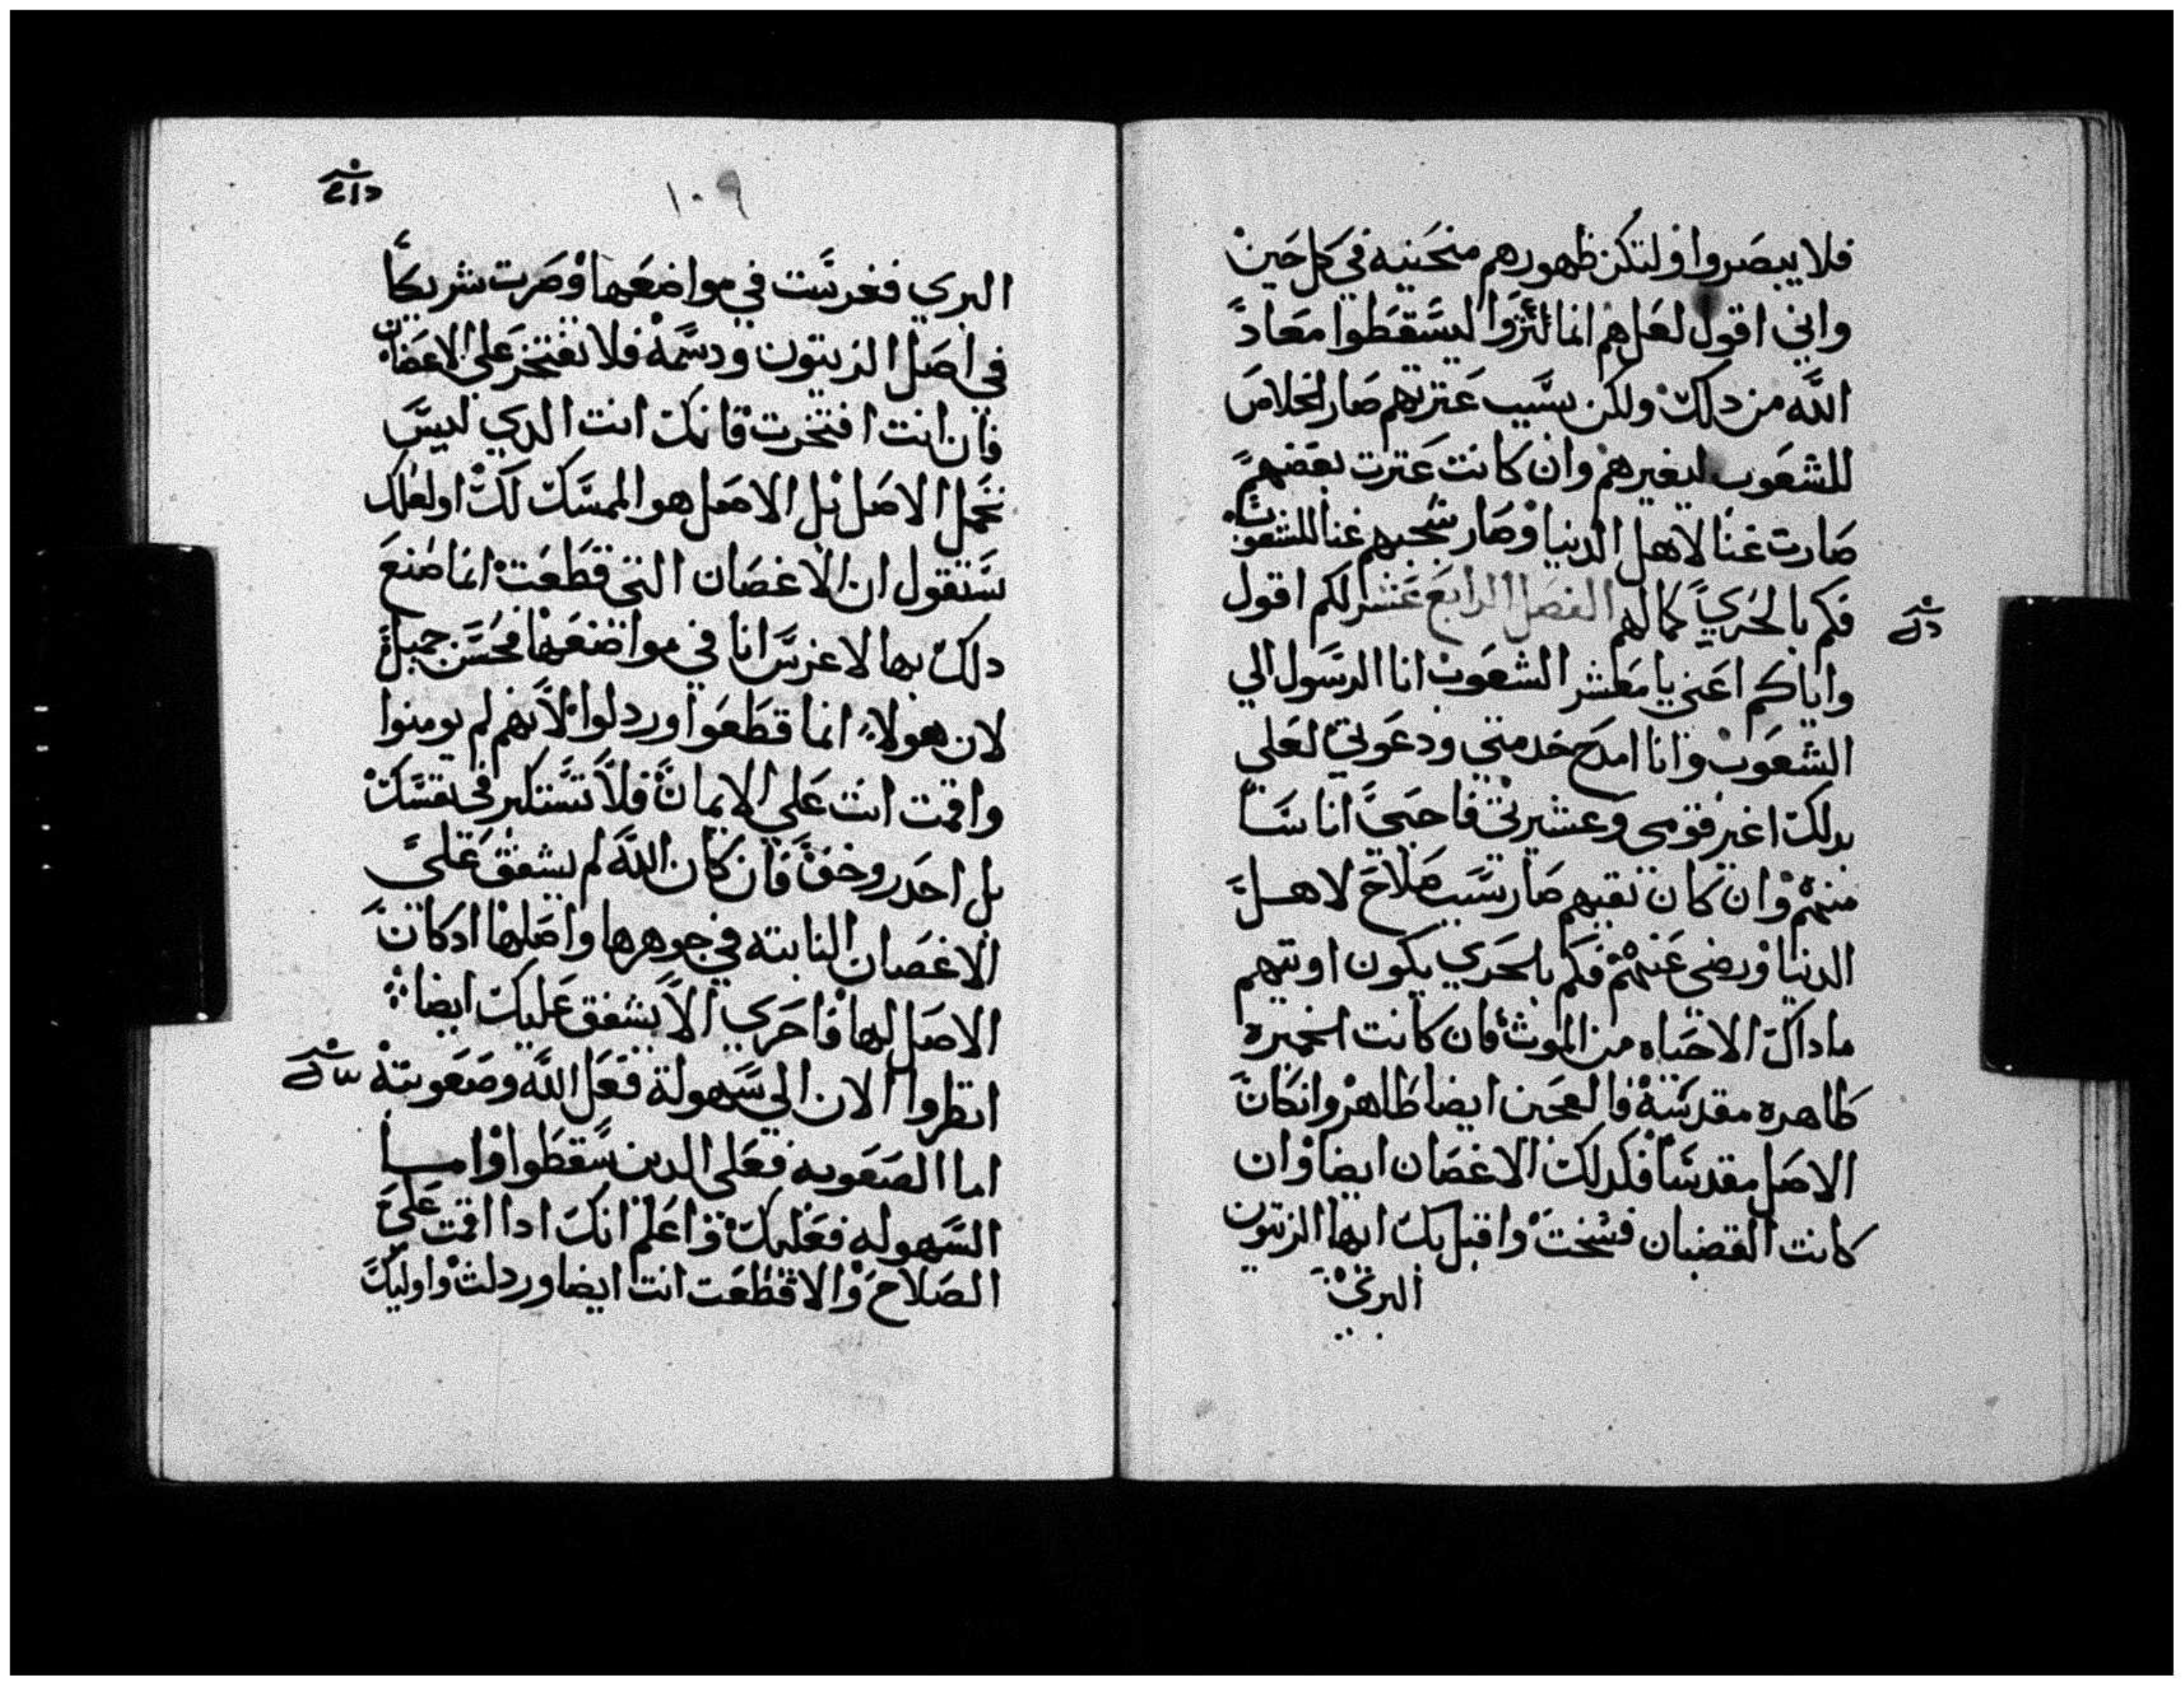 فلا يبصروا ولتكن ظهورهم منحنيه في كل حين
واني اقول لعل هم انما لتزوا ليسقطوا معاد
الله من دلك ولكن بسبب عترتهم صار الخلاص
للشعوب ليغيرهم وان كانت عترت بعضهم
صارت غنا لاهل الدنيا وصار شجبهم غنا للشعوب
فكم بالحري كمالهم الفصل الرابع عشر لكم اقول
واياكم اعني يا معشر الشعوب انا الرسول الي
الشعوب وانا امدح خدمتي ودعوتي لعلي
بدلك اغير قومي وعشيرتي فاحيي اناسا
منهم وان كان نفيهم صار سبب صلاح لاهل
الدنيا ورضي عنهم فكم بالحري يكون اوبتهم
ما داك الا حياه من الموت فان كانت الخميره
طاهره مقدسة فالعجين ايضا طاهر وان كان
الاصل مقدسا فكدلك الاغصان ايضا وان
كانت القضبان فسخت واقبل بك ايها الزيتون
البري
١٠٩
البري فغرست في مواضعها وصرت شريكا
في اصل الزيتون ودسمه فلا تفتخر علي الاغصان
فان انت افتخرت فانك انت الدي ليس
تحمل الاصل بل الاصل هو الممسك لك اولعلك
ستقول ان الاغصان التي قطعت انما صنع
دلك بها لاغرس انا في مواضعها فحسن جميل
لان هولاء انما قطعوا وردلوا لانهم لم يومنوا
واقمت انت علي الايمان فلا تستكبر في نفسك
بل احدر وخف فان كان الله لم يشفق علي
الاغصان النابته في جوهرها واصلها ادكان
الاصل لها فاحري الا يشفق عليك ايضا
انظروا الان الي سهولة فعل الله وصعوبته
اما الصعوبه فعلي الدين سقطوا واما
السهوله فعليك واعلم انك ادا اقمت علي
الصلاح والا قطعت انت ايضا وردلت واوليك